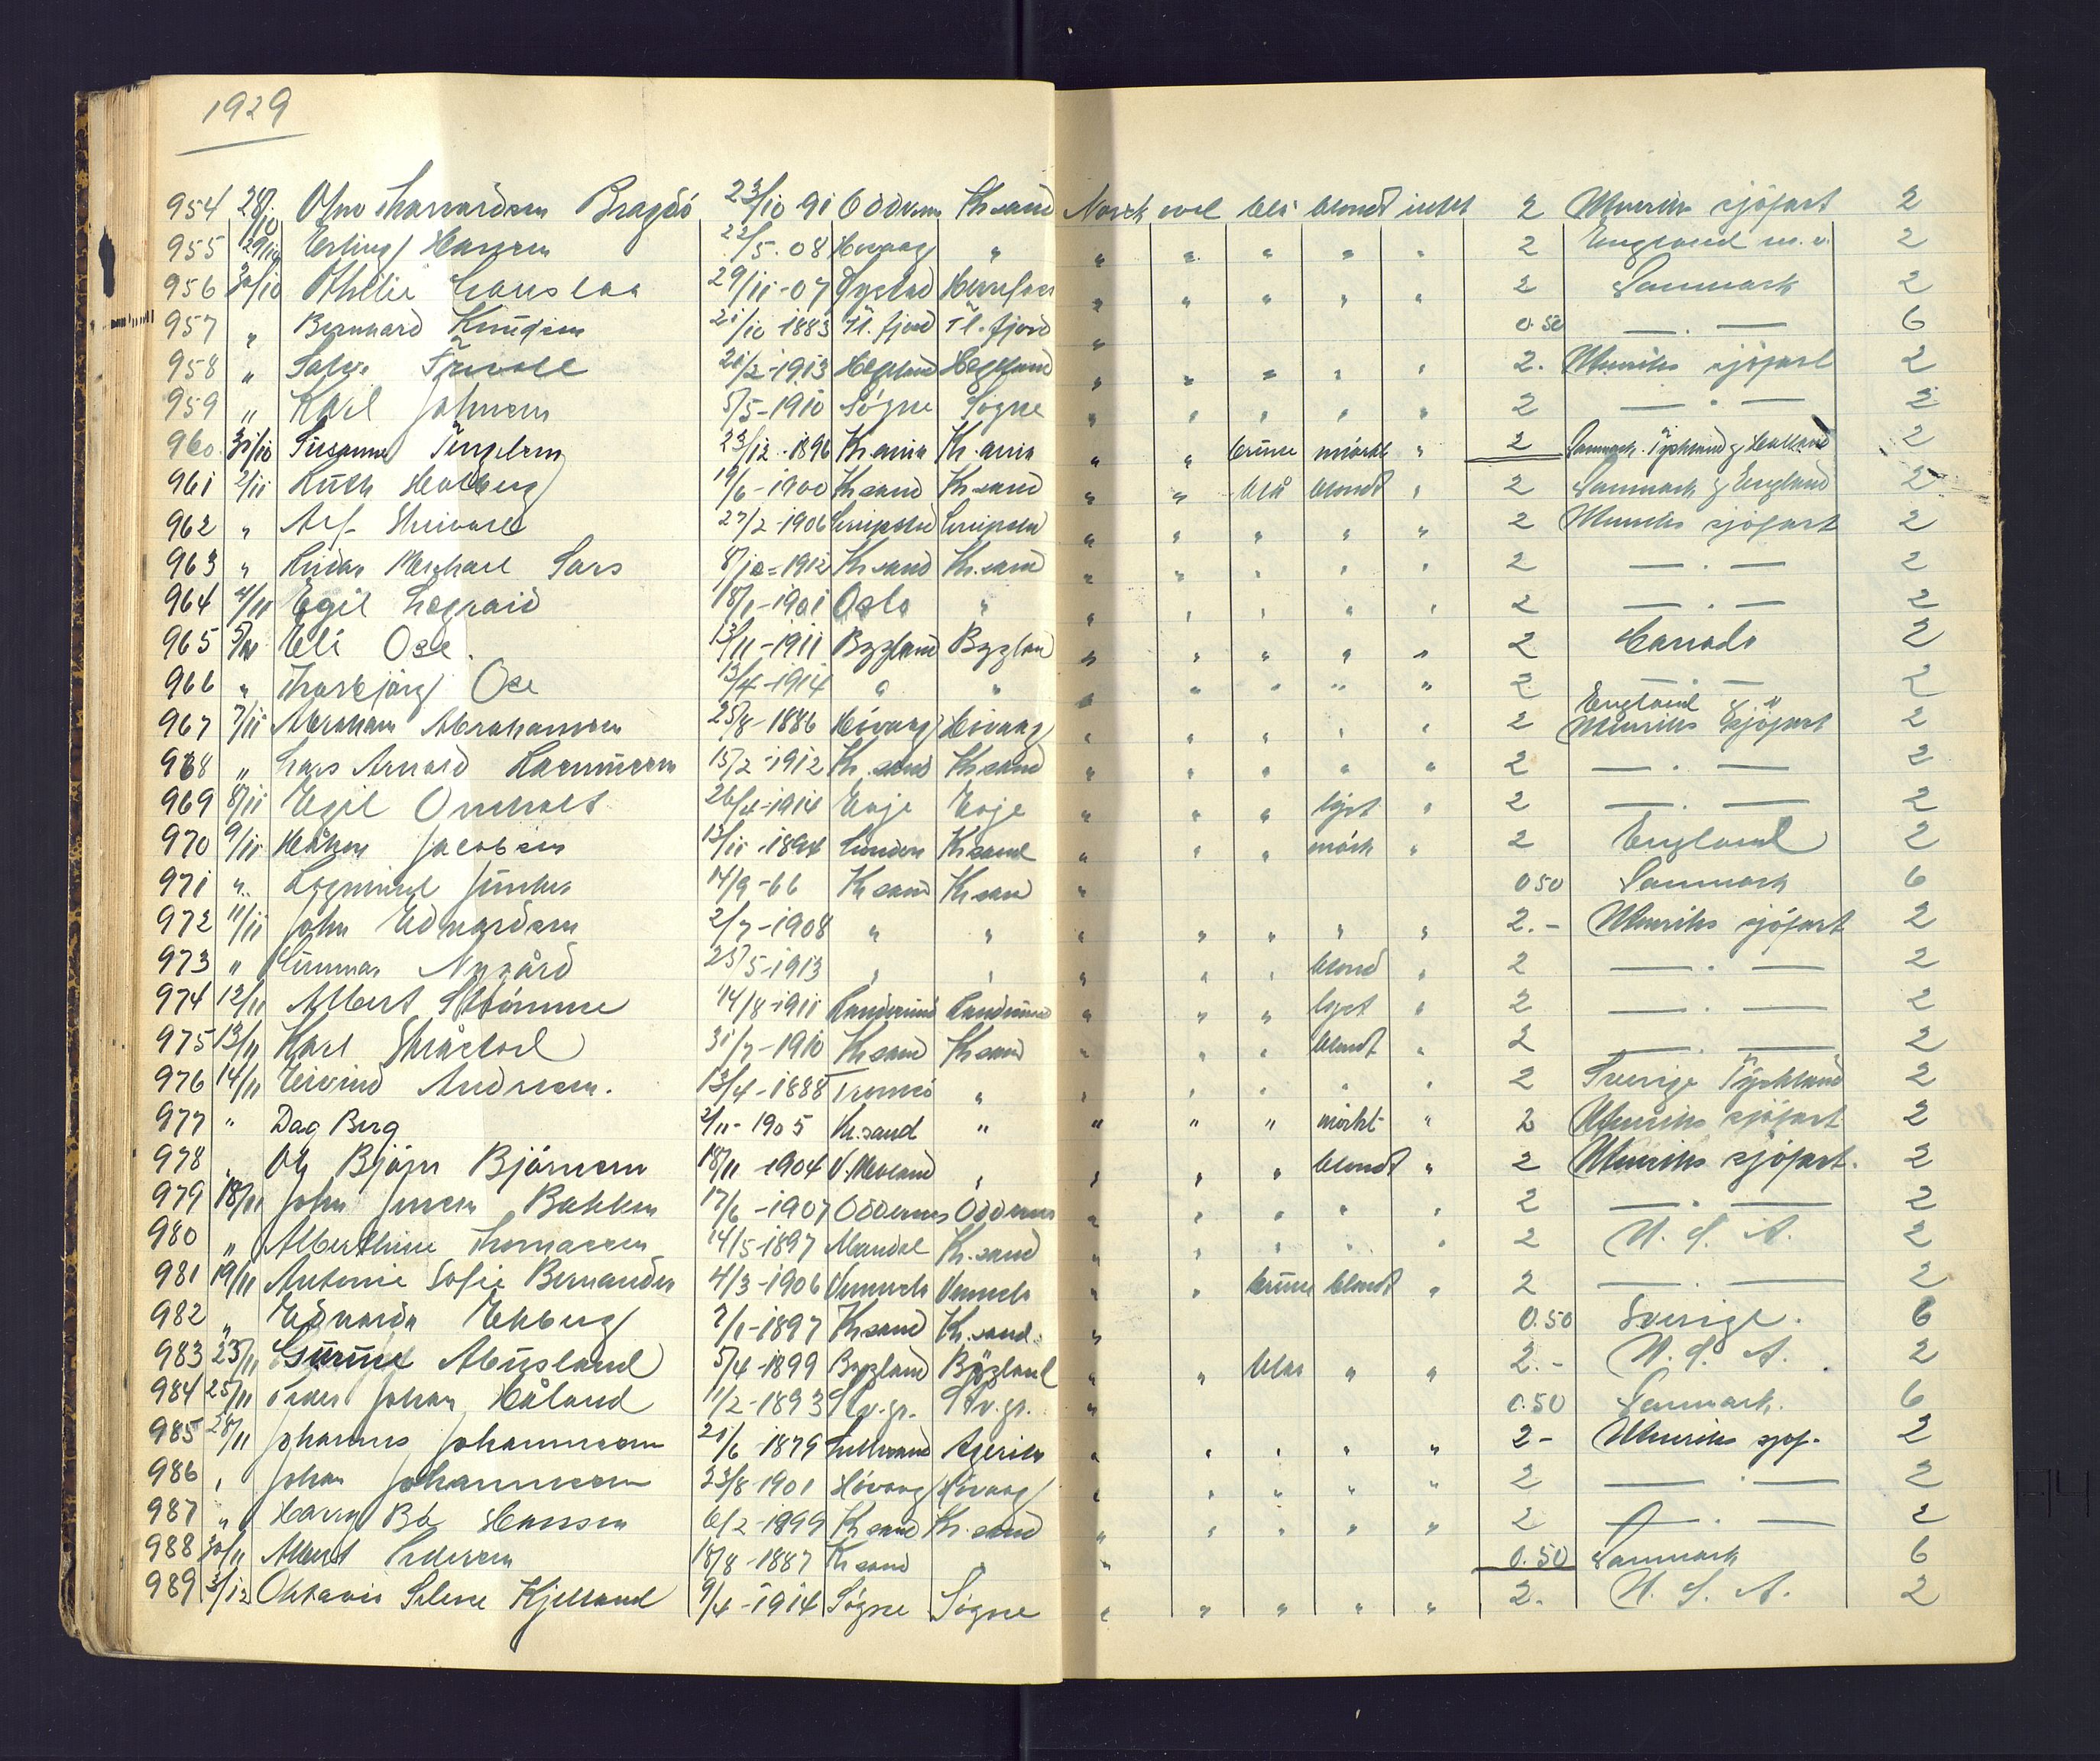 1929
954 28/10 Olav Thorvardsen Bragdö 23/10 91 Oddernes Kr.sand Norsk oval blå blondt intet 2 Utenriks sjöfart 2
955 29/10 Erling Hansen 22/5. 08 Hovaag " " " " " " 2 England m.v. 2
956 30/10 Othilie 29/11-07 Öyestad Herefoss " " " " " 2 Danmark 2
957 " Bernhard Knudsen 21/10-1883 Tl.fjord Tl.fjord " 0.50 — . — 6
958 " Salve 21/2-1913 Hegland Hegland " " " " " 2. Utenriks sjöfart 2
959 " Karl Johnsen 5/5-1910 Søgne Søgne " " " " " 2 — . — 2
960 31/10 Susanne 23/12-1896 Kr.ania Kr.ania " " brune mörkt " 2 Danmark Tyskland & Holland 2
961 2/11 Ruth Hedberg 19/6-1900 Kr.sand Kr.sand " " blå blondt " 2 Danmark & England 2
962 " Alf 27/2-1906 " " " " " 2 Utenriks sjöfart 2
963 " Reidar Michael Sars 8/10-1912 Kr.sand Kr.sand " " " " " 2 — . — 2
964 4/11 Egil Lægreid 18/1-1901 Oslo " " " " " " 2 — . — 2
965 5/11 Eli Ose 13/11-1911 Bygland Bygland " " " " " 2 Canada 2
966 " Thorbjörg Ose 13/4-1914 " " " " " " " 2 — . — 2
967 7/11 Abraham Abrahamsen 25/8-1886 Hövaag Hövaag " " " " " 2 England & Utenriks sjöfart 2
968 " Lars Arnold Rasmussen 15/2-1912 Kr.sand Kr.sand " " " " " 2 — . — 2
969 8/11 Egil Omholt 26/4-1914 Evje Evje " " " lyst " 2 — . — 2
970 9/11 Håkon Jacobsen 13/11-1894 Kr.sand " " " mörk " 2 England 2
971 " 14/9-66 Kr.sand Kr.sand " 0.50 Danmark 6
972 11/11 John Edvardsen 2/7-1908 " " " " " " " 2.- Utenriks sjöfart 2
973 " Gunnar Nygård 25/5-1913 " " " " " blond " 2 — . — 2
974 12/11 Albert Strömme 14/8-1911 Randesund Randesund " " " lyst " 2 — . — 2
975 13/11 Karl 31/7-1910 Kr.sand Kr.sand " " " blondt " 2 — . — 2
976 14/11 Eivind Andresen. 13/4-1888 Tromsö " " " " " " 2 Sverige Tyskland 2
977 " Dag Berg 2/11-1905 Kr.sand " " " " mörkt " 2 Utenriks sjöfart 2
978 " Björn Björnsen 18/11-1904 " " " " blondt " 2 Utenriks sjöfart. 2
979 18/11 John Jensen Bakken 17/6-1907 Oddernes Oddernes " " " " " 2 — . — 2
980 " Alberthine Thomassen 14/5-1897 Mandal Kr.sand " " " " " 2 U. S. A. 2
981 19/11 Antonie Sofie Bernander 4/3-1906 Vennesla Vennesla " " brune blondt " 2 — . — 2
982 " Edvarda Ekberg 7/1-1897 Kr.sand Kr.sand. " 0.50 Sverige. 6
983 23/11 Abusland 5/4-1899 Bygland Bygland " " blaa " " 2.- U. S. A. 2
984 25/11 Peder Johan Håland 11/2-1893 Stv.gr. Stv.gr. " 0.50 Danmark. 6
985 28/11 Johannes Johannessen 21/6-1879 " " " " " 2- Utenriks sjöf. 2
986 " Johan Johannessen 23/8-1901 Hövaag Hövaag " " " " " 2 — . — 2
987 " Harry Bö Hansen 6/2-1899 Kr.sand Kr.sand " " " " " 2 — . — 2
988 30/11 Albert Pedersen 18/8-1887 Kr.sand " " 0.50 Danmark 6
989 3/12 Oktavie Selene Kjelland 9/4-1914 Søgne Søgne " " " " " 2. U. S. A. 2